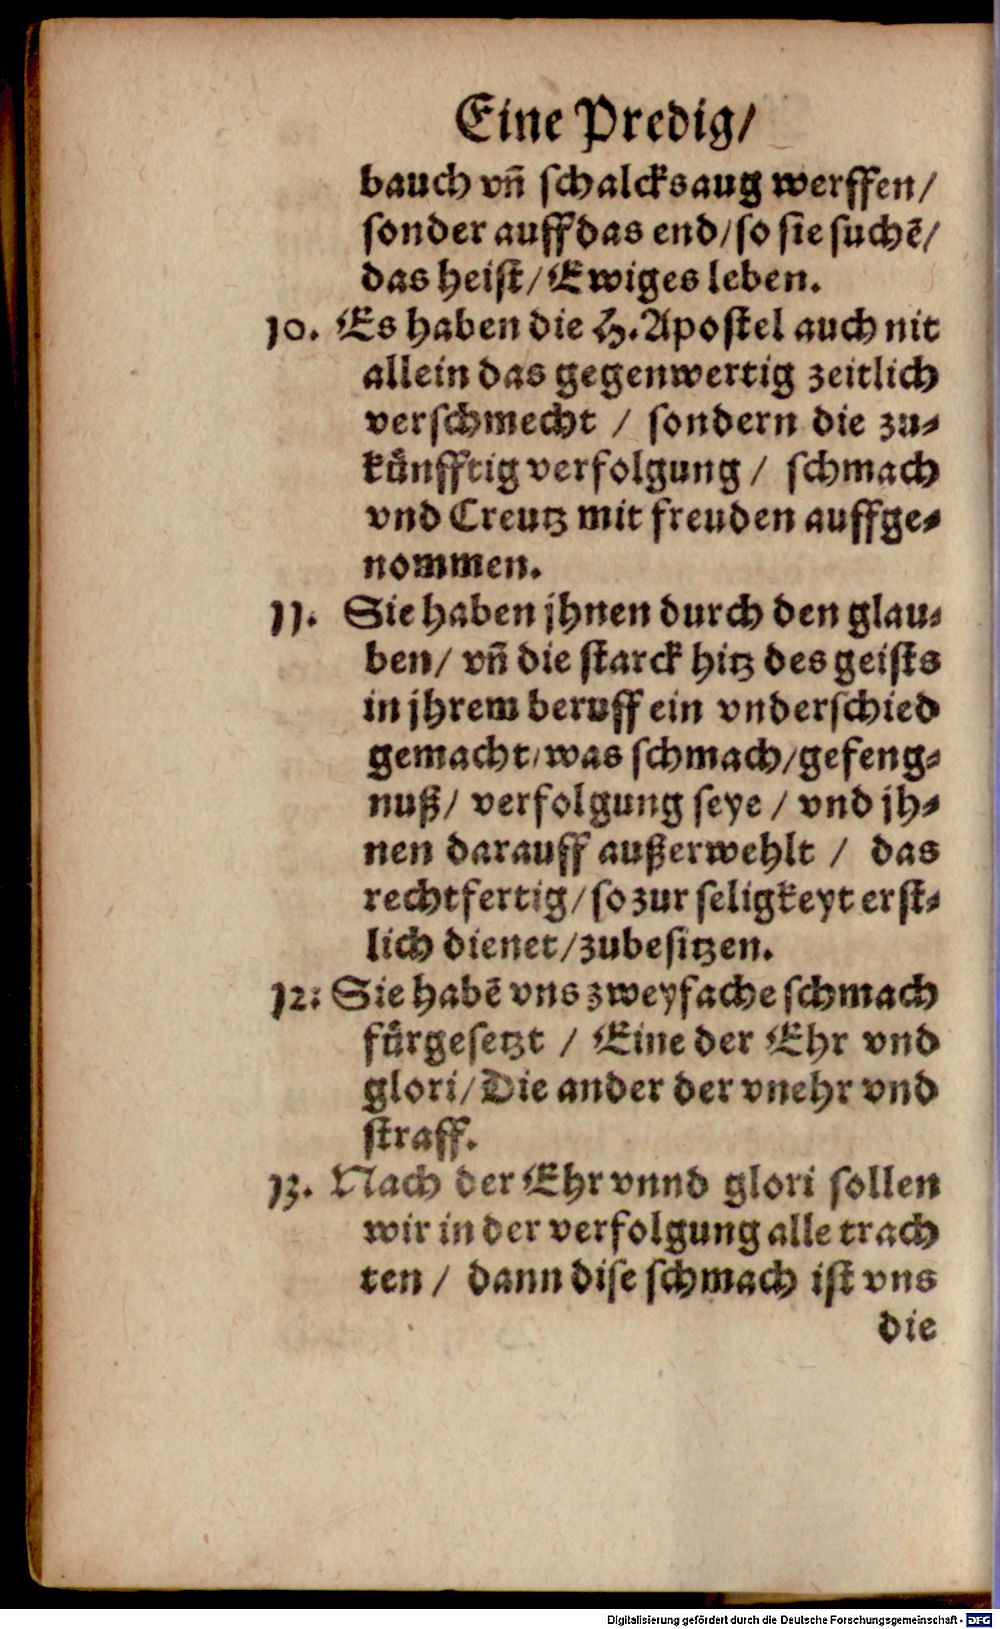 Eine Predig/
bauch vñ schalcksaug werffen/
sonder auff das end/so sie suchẽ/
das heist/Ewiges leben.
10. Es haben die H. Apostel auch nit
allein das gegenwertig zeitlich
verschmecht / sondern die zu-
kůnfftig verfolgung / schmach
vnd Creutz mit freuden auffge-
nommen.
11. Sie haben jhnen durch den glau-
ben/ vñ die starck hitz des geists
in jhrem beruff ein vnderschied
gemacht/was schmach/gefeng-
nuß/ verfolgung seye / vnd jh-
nen darauff außerwehlt / das
rechtfertig/so zur seligkeyt erst-
lich dienet/zubesitzen.
12: Sie habẽ vns zweyfache schmach
fůrgesetzt / Eine der Ehr vnd
glori/Die ander der vnehr vnd
straff.
13. Nach der Ehr vnnd glori sollen
wir in der verfolgung alle trach
ten / dann dise schmach ist vns
die
Digitalisierung gefördert durch die Deutsche Forschungsgemeinschaft - DFG